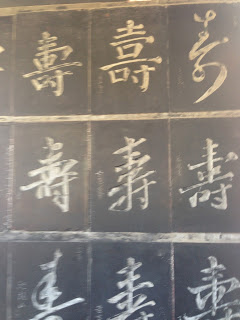 壽 壽 寿
壽 壽 壽
壽 壽 壽